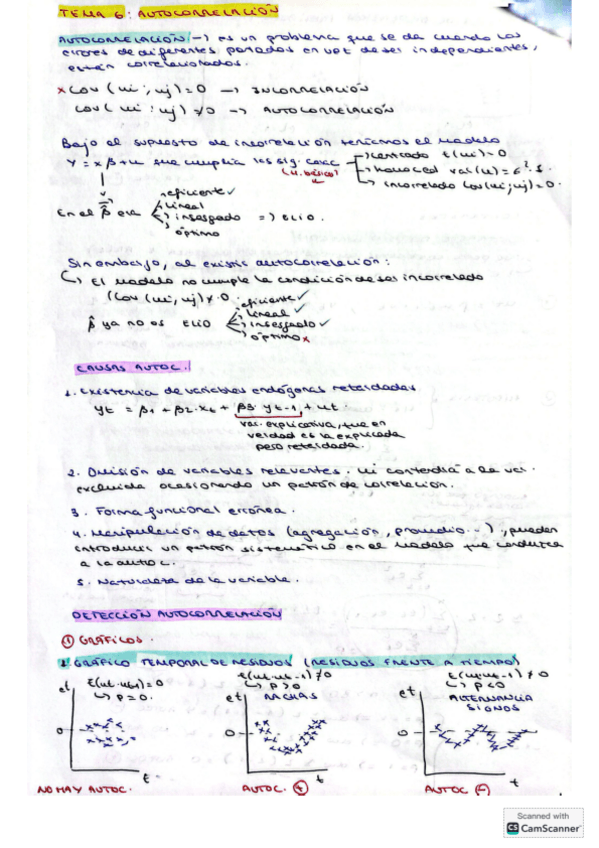 TEMA 6: AUTOCORRELACIÓN
AUTOCORRELACIÓN -> es un problema que se da cuando los
errores de diferentes periodos en vpt de ser independientes,
están correlacionados.
x Cov (ui ; uj) = 0 -> INCORRELACIÓN
Cov (ui ; uj) ≠ 0 -> AUTOCORRELACIÓN
Bajo el supuesto de incorrelación teníamos el modelo
Y = xβ + u que cumplía las sig. carac
(u. básico)
centrado E(ui) = 0
homoced var(u) = σ². I.
incorrelado Cov(ui; uj) = 0.
En el β̂ era
eficiente ✓
lineal
insesgado => ELIO.
óptimo
Sin embargo, al existir autocorrelación:
↳ El modelo no cumple la condición de ser incorrelado
(Cov (ui, uj) ≠ 0
β̂ ya no es ELIO
eficiente ✓
lineal ✓
insesgado ✓
óptimo x
CAUSAS AUTOC.
1. Existencia de variables endógenas retardadas
yt = β1 + β2.xt + β3 yt-1 + ut.
var. explicativa, que en
verdad es la explicada
pero retardada.
2. Omisión de variables relevantes. ui contendría a la var.
excluida ocasionando un patrón de correlación.
3. Forma funcional errónea.
4. Manipulación de datos (agregación, promedio..), pueden
introducir un patrón sistemático en el modelo que conduzca
a la autoc.
5. Naturaleza de la variable.
DETECCIÓN AUTOCORRELACIÓN
① GRÁFICOS.
GRÁFICO TEMPORAL DE RESIDUOS (RESIDUOS FRENTE A TIEMPO)
E(ut.ut-1) = 0 E(ut ut-1) ≠ 0 E(ut ut-1) ≠ 0
↳ ρ = 0. ↳ ρ > 0 ↳ ρ < 0
et et RACHAS et ALTERNANCIA
SIGNOS
0 0 0
t t t
NO HAY AUTOC. AUTOC. (+) AUTOC (-)
Scanned with
CS CamScanner